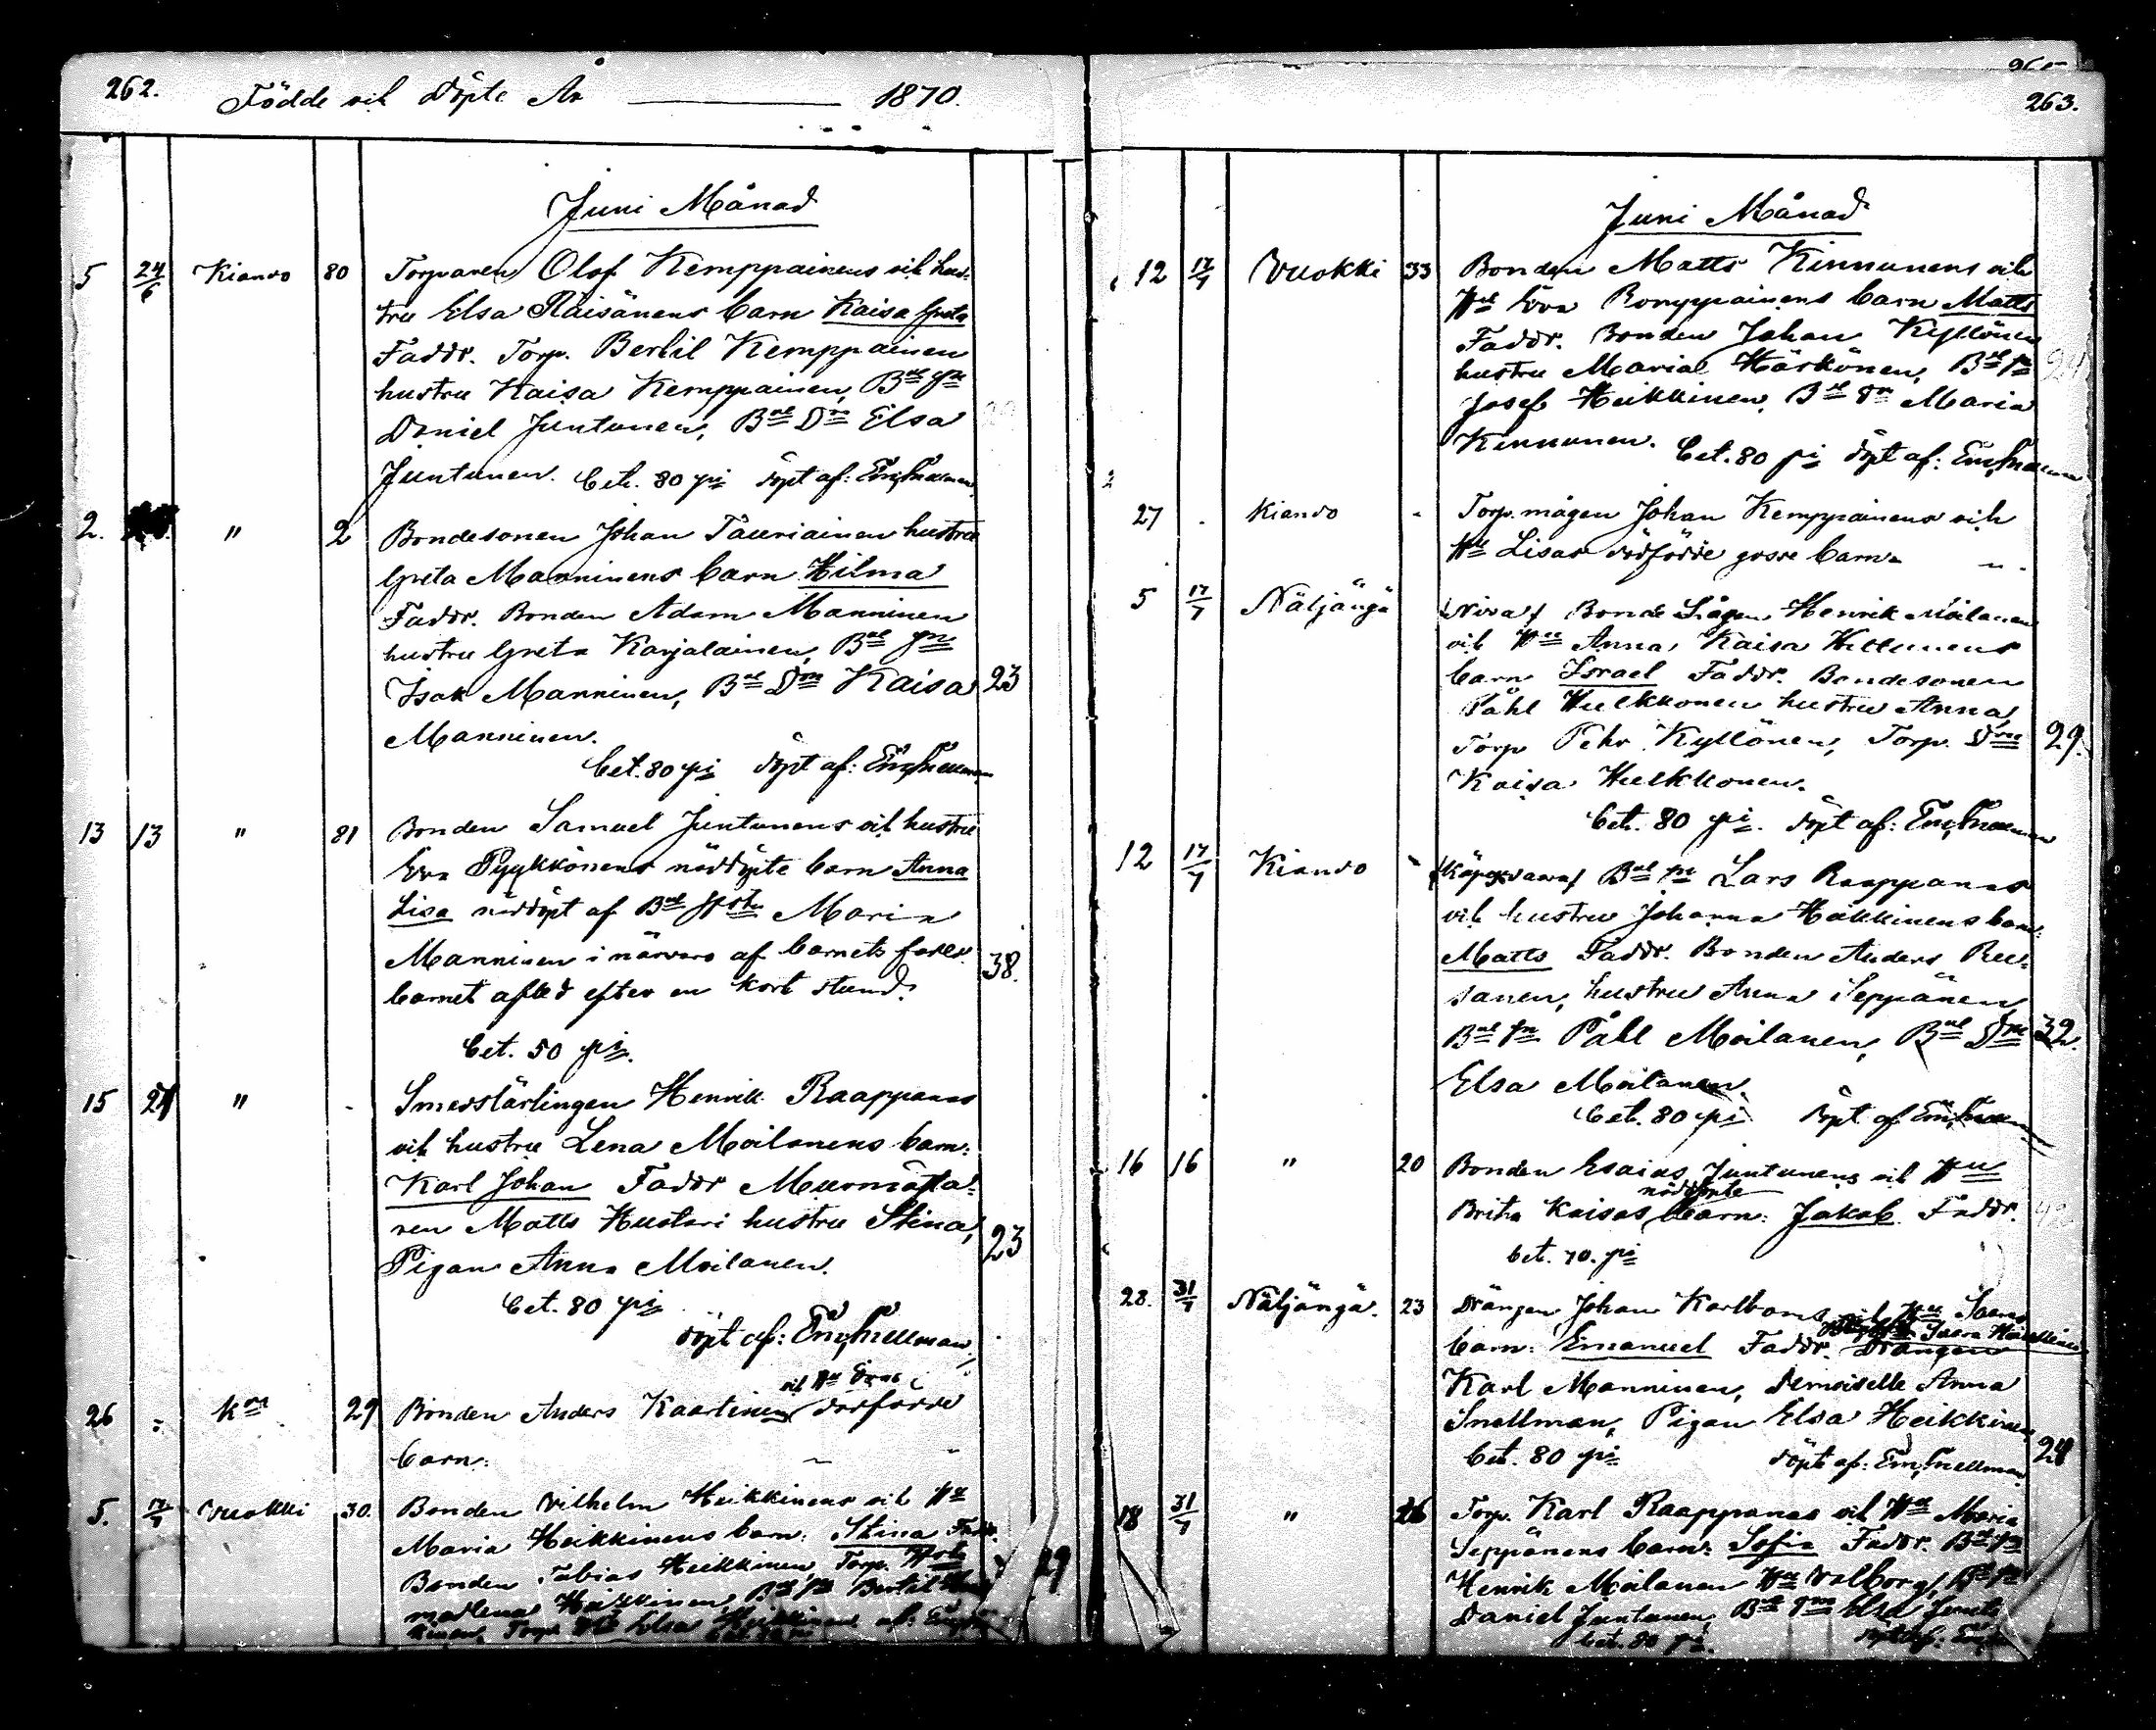 262. Födde och Döpte År 1870.
Juni Månad
5 24/6 Kiando 80 Torparen Olof Kemppainens och hus-
tru Elsa Räisänens barn Kaisa Greta
Faddr. Torp. Bertil Kemppainen
hustru Kaisa Kemppainen, Bde Sn
Daniel Juntunen, Bde Dn Elsa
Juntunen. bet. 80 pi döpt af: Em. Snellman
2. " 2 Bondesonen Johan Tauriainen hustru
Greta Manninens barn Hilma
Faddr. Bonden Adam Manninen
hustru Greta Karjalainen, Bde Sn
Isak Manninen, Bde Dn Kaisa 23
Manninen.
bet. 80 pi döpt af: Em. Snellman
13 13 " 81 Bonden Samuel Juntunens och hustru
Eva Pyykkönens nöddöpte barn Anna
Lisa nöddöpt af Bde Hstu Maria
Manninen i närvaro af barnets far
barnet afled efter en kort stund. 38.
bet. 50 pi.
15 24 " - Smedslärlingen Henrik Raappanas
och hustru Lena Moilanens barn:
Karl Johan Faddr Murmästa-
ren Matts Hustari hustru Stina, 23
Pigan Anna Moilanen.
bet. 80 pi
döpt af: Em. Snellman
och Hu Evas
26 - kno 29 Bonden Anders Kaartinens dödfödde
barn:
5. 17/7 Vuokki 30. Bonden Vilhelm Heikkinens och Hu
Maria Heikkinens barn: Stina Faddr.
Bonden Tobias Heikkinen Torp. Hstu 29
Madlena Heikkinen, Bde Sn Bertil
Torp. Elsa Heikkinen af: Em.
263.
Juni Månad
12 17/7 Vuokki 33 Bonden Matts Kinnunens och
Hu Eva Romppainens barn Matts
Faddr. Bonden Johan Kyllönen
hustru Maria Härkönen, Bde Sn
Josef Heikkinen, Bde Dn Maria
Kinnunen. bet. 80 pi döpt af: Em. Snellman
27 - Kiando - Torp. mågen Johan Kemppainens och
Hu Lisas dödfödde gosse barn
5 17/7 Näljängä (Niva) Bonde Mågen Henrik Moilanen
och Hu Anna Kaisa Keltunens
barn Israel Faddr. Bondesonen
Påhl Hulkkonen hustru Anna,
Torp Pehr Kyllönen, Torp. Dn 29.
Kaisa Hulkkonen.
bet. 80 pi. döpt af: Em. Snellman
12 17/7 Kiando - Bde Sn Lars Raappanas
och hustru Johanna Heikkinens barn
Matts Faddr. Bonden Anders Ree-
sanen, hustru Anna Seppänen
Bde Sn Påhl Moilanen, Bde Dn 32.
Elsa Moilanen.
bet. 80 pi. döpt af Em. Snellman
16 16 " 20 Bonden Esaias Juntunens och Hu
nöddöpte
Brita Kaisas barn: Jakob. Faddr.
bet. 70. pi
28. 31/7 Näljängä. 23 Drängen Johan Karlboms och Hu Saaras
Saara Heikkinen
barn: Emanuel Faddr. Drängen
Karl Manninen, Demoiselle Anna
Snellman, Pigan Elsa Heikkinen
bet. 80 pi döpt af: Em. Snellman 24
18 31/7 " 26 Torp. Karl Raappanas och Hu Maria
Seppänens barn: Sofia Faddr. Bde Sn
Henrik Moilanen Hu Valborg, Bde Sn
Daniel Juntunen, Bde Dn Elsa
bet. 80 pi. döpt af: Em.